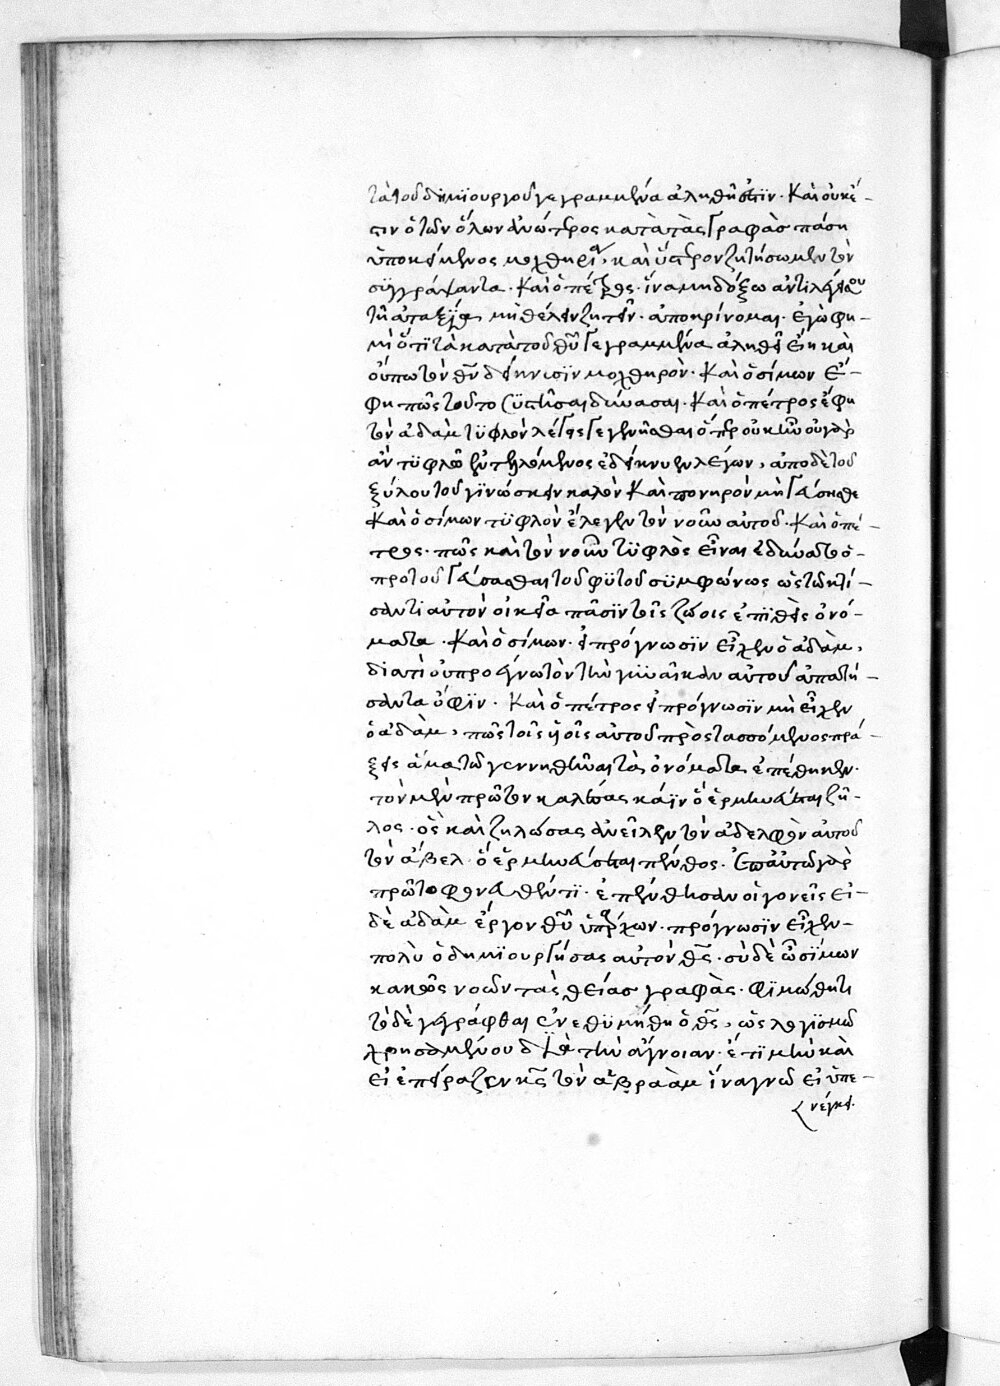 τὰ τοῦ δημϊουργοῦ γεγραμμένα ἀληθῆ ἐστϊν· Καὶ οὐκέ-
τιν ὁ τῶν ὅλων ἀνώτερος κατὰ τὰς Γραφὰσ πάσῃ
ὑποκείμενος μοχθηρίᾳ, καὶ ὕστερον ζητήσωμεν τὸν
σϋγγράψαντα· Καὶ ὁ πέτρος· ἵνα μὴ δόξω ἀντιλέγειν σου
τῇ ἀταξίᾳ μὴ θέλειν ζητεῖν· ἀποκρίνομαι· Ἐγὼ φη-
μὶ ὅτϊ τὰ κατὰ τοῦ θῦ Γεγραμμένα ἀληθῆ εἴη καὶ
οὕπω τὸν θν δείκνυσϊν μοχθηρὸν· Καὶ ὁ σίμων ἔ-
φη πῶς τοῦτο Συστῆσαι δύνασαι· Καὶ ὁ πέτρος ἔφη
τὸν ἀδὰμ τϋφλὸν λέγεις Γεγενῆσθαι ὅπερ οὐκ ἦν οὐ γὰρ
ἂν τϋφλῶ ἐντελλόμενος ἐδείκνυεν λέγων, ἀπὸ δὲ τοῦ
ξύλου τοῦ γϊνώσκειν καλὸν Καὶ πονηρὸν μὴ Γεύσησθε
Καὶ ὁ σίμων τϋφλὸν ἔλεγεν τὸν νοῦν αὐτοῦ· Καὶ ὁ πέ-
τρος· πῶς καὶ τὸν νοῦν τϋφλὸς εἶναι ἐδύνατο ὁ-
πρὸ τοῦ Γεύσασθαι τοῦ φϋτοῦ σϋμφώνως ὡς τῶ κτί-
σαντι αὐτὸν οἰκεῖα πᾶσϊν τοῖς ζώοις ἐπϊθεὶς ὀνό-
ματα· Καὶ ὁ σίμων· εἰ πρόγνωσϊν εἶχεν ὁ ἀδὰμ,
διατὶ οὐ προέγνω τὸν τὴν γϋναῖκαν αὐτοῦ ἀπατή-
σαντα ὄφϊν· Καὶ ὁ πέτρος εἰ πρόγνωσϊν μὴ εἶχεν
ὁ ἀδὰμ, πῶς τοῖς ὑοῖς αὐτοῦ πρὸς τασσόμενος πρά-
ξεις ἅμα τῶ γεννηθῆναι τὰ ὀνόματα ἐπέθηκεν·
τὸν μὲν πρῶτον καλέσας κάϊν ὃ ἑρμηνεύεται ζῆ-
λος· ὃς καὶ ζηλώσας ἀνεῖλεν τὸν ἀδελφὸν αὐτοῦ
τὸν ἄβελ· ὃ ἑρμηνεύεται πένθος· Ἐπ' αὐτῶ γὰρ
πρῶτο φονευθέντϊ· ἐπένθησαν οἱ γονεῖς εἰ-
δὲ ἀδὰμ ἔργον θῦ ὑπάρχων· πρόγνωσϊν εἶχεν-
πολὺ ὁ δημϊουργήσας αὐτὸν θς· σὺ δὲ ὦ σϊμων
κακῶς νοῶν τὰς θείασ γραφὰς· Φϊμώθητι
τὸ δὲ γεγράφθαι ἐνεθϋμήθη ὁ θς, ὡς λογϊσμῶ
χρησαμένου διὰ τὴν ἄγνοιαν· ἔτϊ μὴν καὶ
εἰ ἐπείραζεν κς τὸν ἀβραὰμ ἵνα γνῶ εἰ ὑπε-
νέγκει·